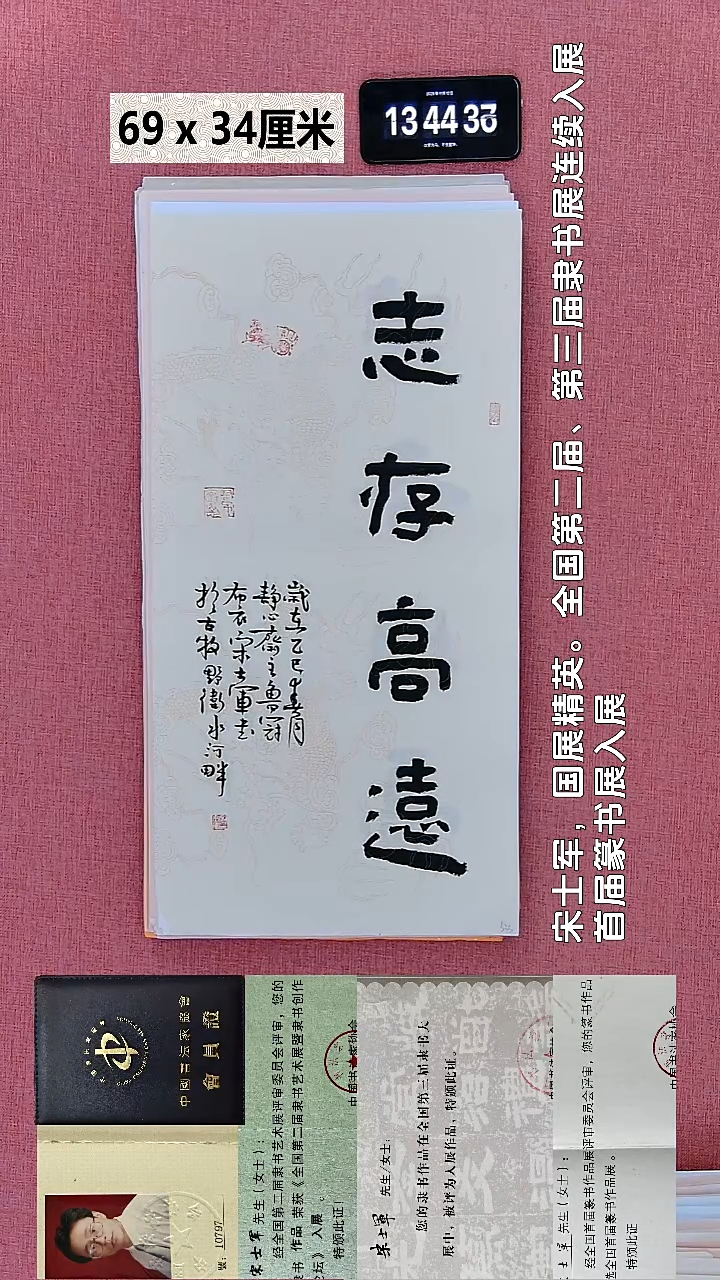 69 x 34厘米
13 44 36
志存高遠
歲在乙巳春月
靜心齋主魯冠
布衣宋士軍書
於古牧野衛水河畔
宋士军，国展精英。全国第二届、第三届隶书展连续入展
首届篆书展入展
中國書法家協會
會員證
號：10797
宋士军 先生（女士）：
经全国第二届隶书艺术展评审委员会评审，您的
隶书 作品 荣获《全国第二届隶书艺术展暨隶书创作
论坛》 入展 。
特颁此证！
宋士軍 先生/女士：
您的隶书作品在全国第三届隶书大
展中，被评为入展作品，特颁此证。
士军 先生（女士）：
经全国首届篆书作品展评审委员会评审，您的篆书作品
选全国首届篆书作品展。
特颁此证